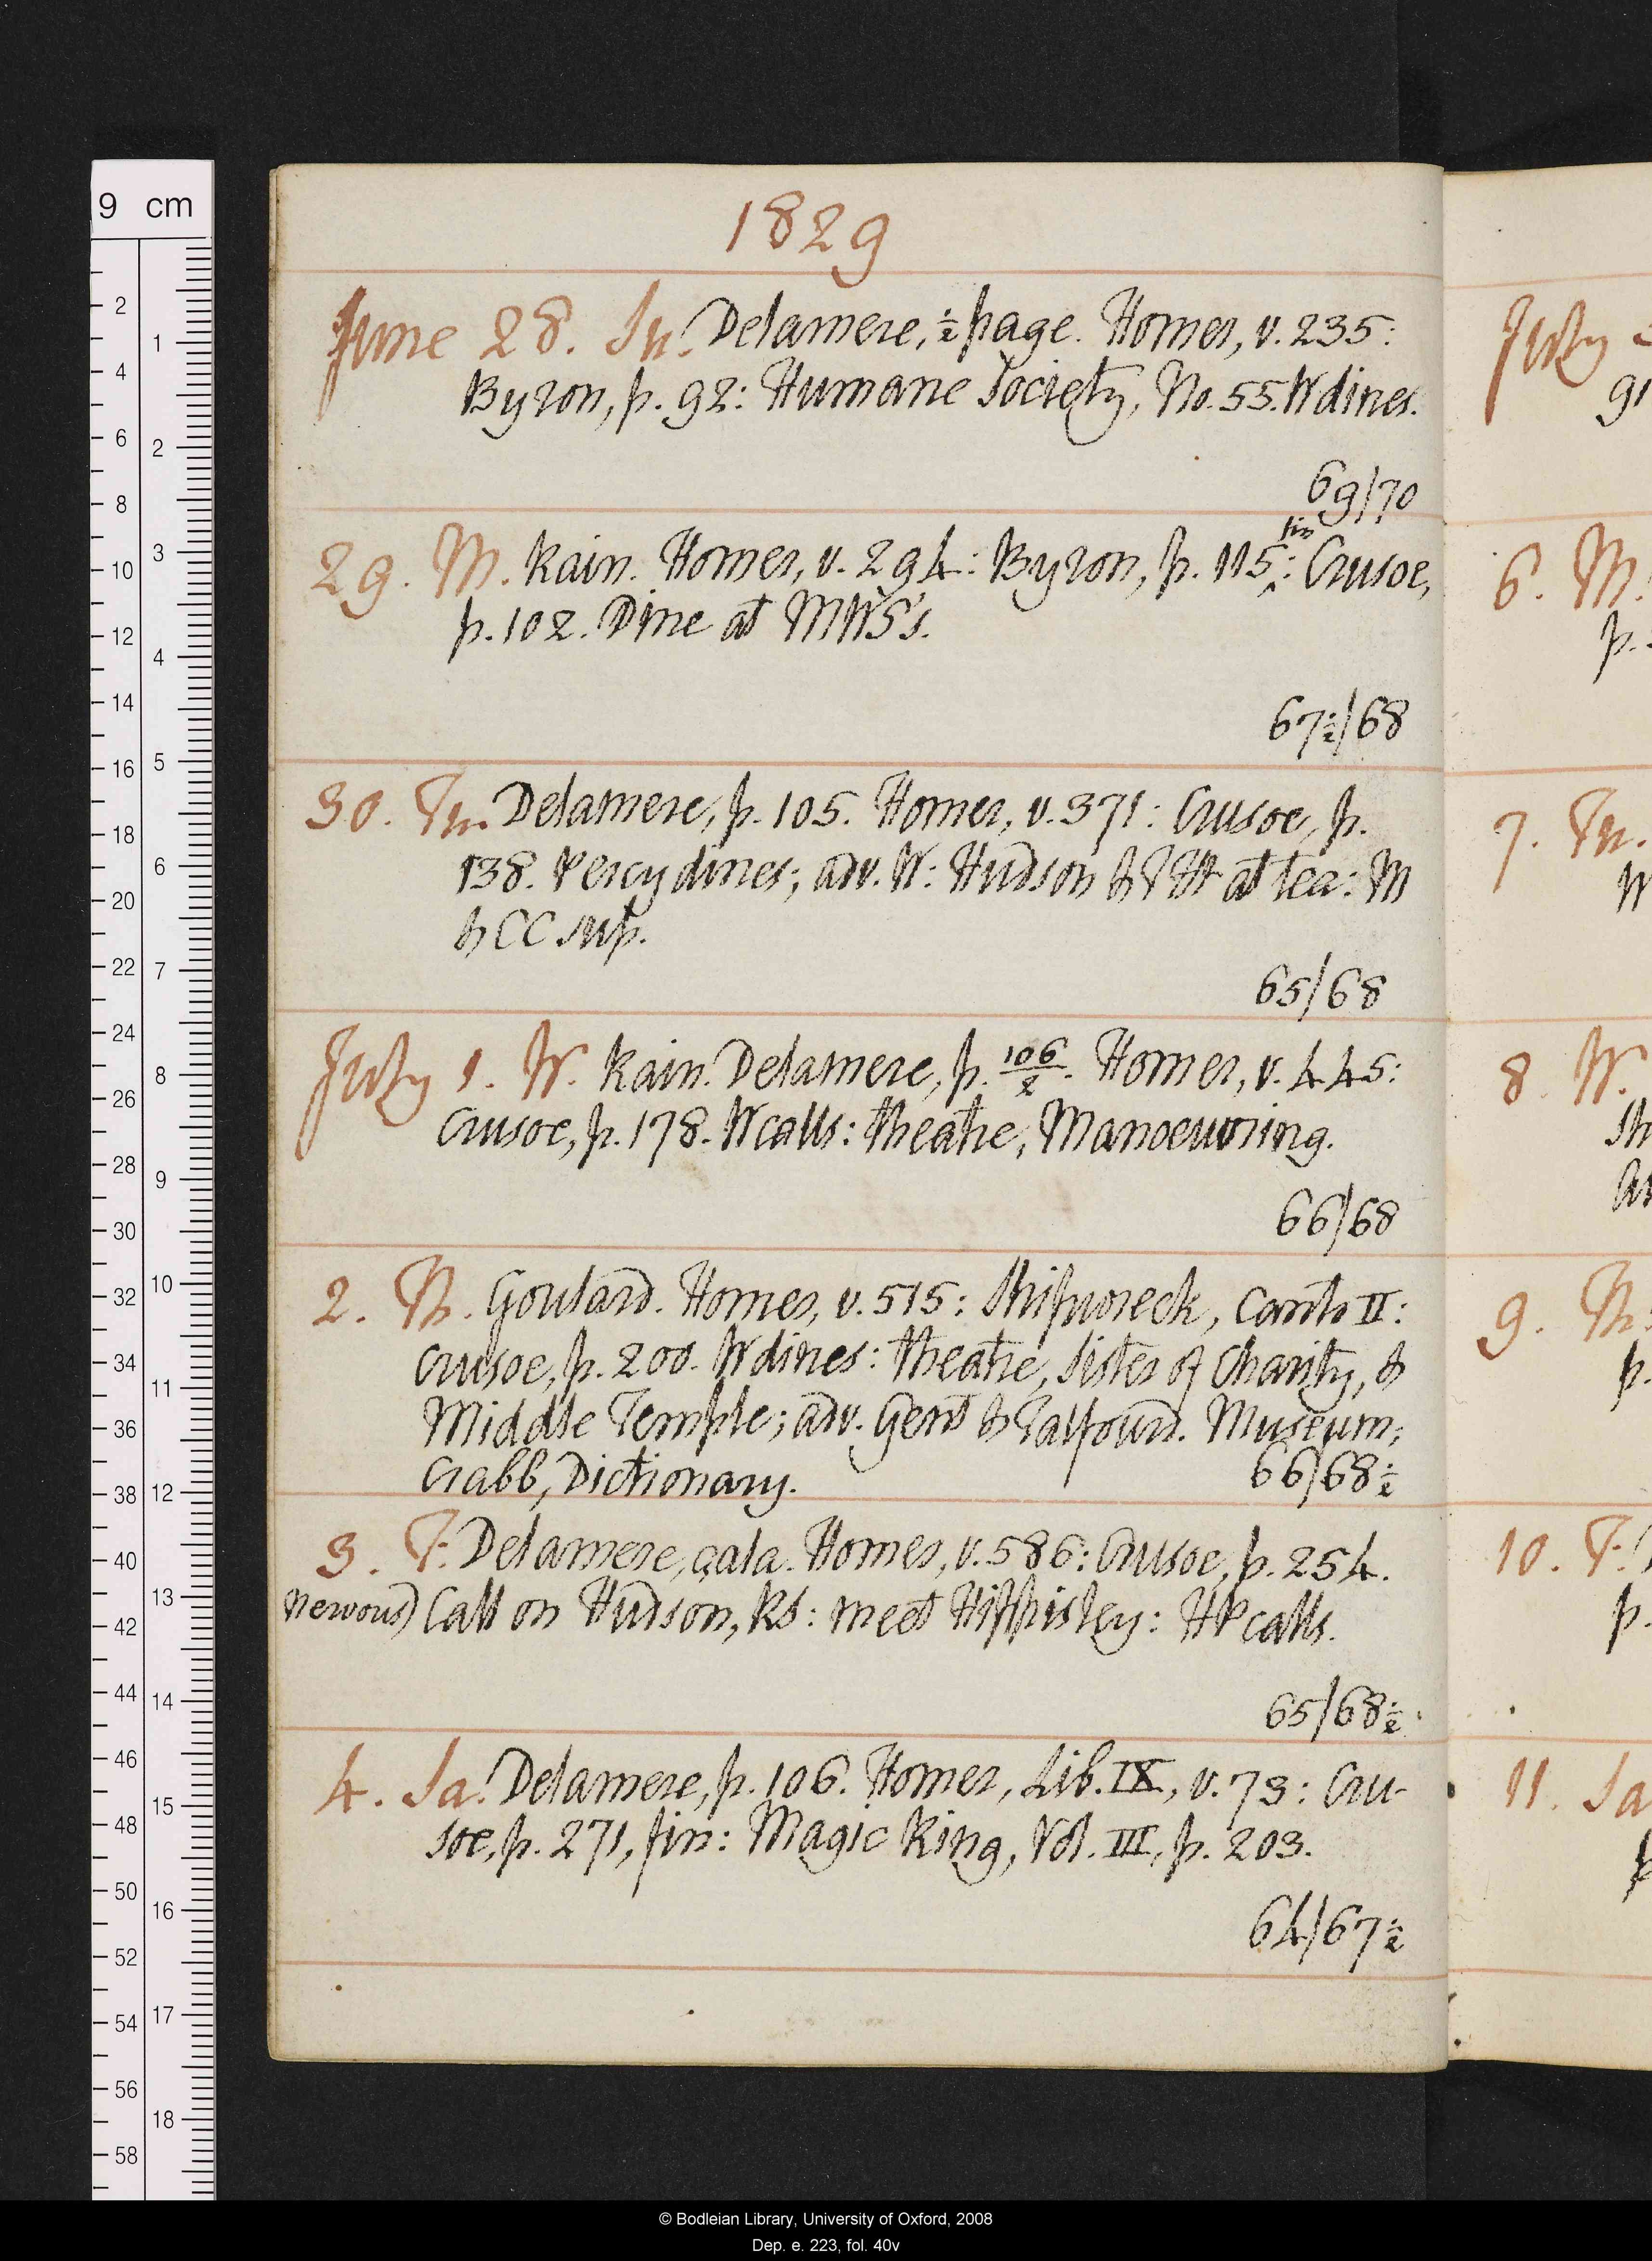 1829
June 28. Su. Delamere, ½ page. Homer, v. 235:
Byron, p. 92: Humane Society, No. 55. W dines.
69/70
29. M. Rain. Homer, v. 294: Byron, p. 115, fin: Crusoe,
p. 102. Dine at MWS's.
67½/68
30. Tu. Delamere, p. 105. Homer, v. 371: Crusoe, p.
138. Percy dines; adv. W: Hudson & at tea: M
& CC sup.
65/68
July 1. W. Rain. Delamere, p. 106/2. Homer, v. 445:
Crusoe, p. 178. W calls: theatre, Manoeuvring.
66/68
2. Th. Goulard. Homer, v. 515: Shipwreck, Canto II:
Crusoe, p. 200. W dines: theatre, Sister of Charity, &
Middle Temple; adv. Gent & Talfourd. Museum;
Crabb, Dictionary.
66/68½
3. F. Delamere, çala. Homer, v. 586: Crusoe, p. 254.
nervous) Call on Hudson, RS: meet Hippisley: HP calls.
65/68½
4. Sa. Delamere, p. 106. Homer, Lib. IX, v. 73: Cru-
soe, p. 271, fin: Magic Ring, Vol. III, p. 203.
64/67½
July
6. M.
p.
7. Tu.
W
8. W.
9. Th.
p.
10. F.
p.
11. Sa
9 cm
2
4
6
8
10
12
14
16
18
20
22
24
26
28
30
32
34
36
38
40
42
44
46
48
50
52
54
56
58
1
2
3
4
5
6
7
8
9
10
11
12
13
14
15
16
17
18
© Bodleian Library, University of Oxford, 2008
Dep. e. 223, fol. 40v